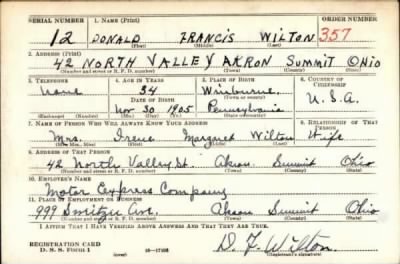 SERIAL NUMBER 1. NAME (Print) ORDER NUMBER
12 DONALD FRANCIS WILTON 357
(First) (Middle) (Last)
2. ADDRESS (Print)
42 NORTH VALLEY AKRON SUMMIT OHIO
(Number and street or R. F. D. number) (Town) (County) (State)
3. TELEPHONE 4. AGE IN YEARS 5. PLACE OF BIRTH 6. COUNTRY OF CITIZENSHIP
None 34 Winburne U.S.A.
DATE OF BIRTH (Town or county)
Nov 30 1905 Pennsylvania
(Exchange) (Number) (Mo.) (Day) (Yr.) (State or country)
7. NAME OF PERSON WHO WILL ALWAYS KNOW YOUR ADDRESS 8. RELATIONSHIP OF THAT PERSON
Mrs. Irene Margaret Wilton Wife
(Mr., Mrs., Miss) (First) (Middle) (Last)
9. ADDRESS OF THAT PERSON
42 North Valley St. Akron Summit Ohio
(Number and street or R. F. D. number) (Town) (County) (State)
10. EMPLOYER'S NAME
Motor Express Company
11. PLACE OF EMPLOYMENT OR BUSINESS
999 Ave. Akron Summit Ohio
(Number and street or R. F. D. number) (Town) (County) (State)
I AFFIRM THAT I HAVE VERIFIED ABOVE ANSWERS AND THAT THEY ARE TRUE.
REGISTRATION CARD
D. S. S. FORM 1
D. F. Wilton
(Registrant's signature)